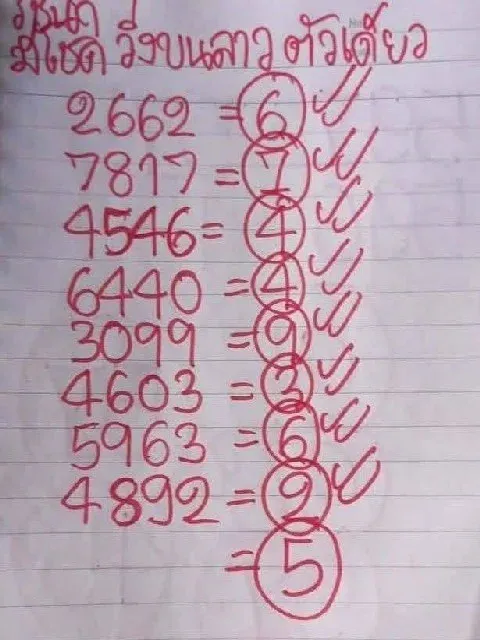 มีโชค วิ่งบนลาว ตัวเดียว
2662 = 6
7817 = 7
4546 = 4
6440 = 4
3099 = 9
4603 = 3
5963 = 6
4892 = 2
= 5